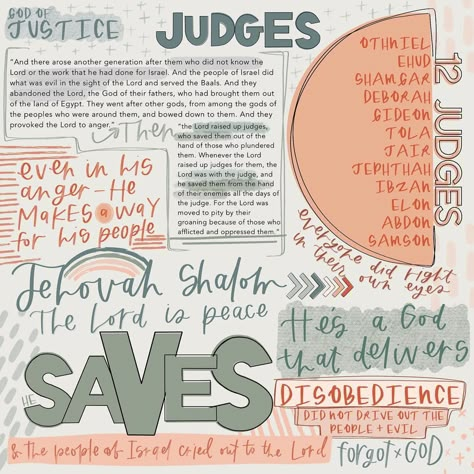 GOD OF
JUSTICE
JUDGES
"And there arose another generation after them who did not know the
Lord or the work that he had done for Israel. And the people of Israel did
what was evil in the sight of the Lord and served the Baals. And they
abandoned the Lord, the God of their fathers, who had brought them out
of the land of Egypt. They went after other gods, from among the gods of
the peoples who were around them, and bowed down to them. And they
provoked the Lord to anger."
Then
"the Lord raised up judges,
who saved them out of the
hand of those who plundered
them. Whenever the Lord
raised up judges for them, the
Lord was with the judge, and
he saved them from the hand
of their enemies all the days
of the judge. For the Lord was
moved to pity by their
groaning because of those who
afflicted and oppressed them."
12 JUDGES
OTHNIEL
EHUD
SHAMGAR
DEBORAH
GIDEON
TOLA
JAIR
JEPHTHAH
IBZAN
ELON
ABDON
SAMSON
everyone did right
in their own eyes
even in his
anger-He
MAKES a WAY
for his people
Jehovah Shalom
The Lord is peace
HE
SAVES
He's a God
that delivers
DISOBEDIENCE
DID NOT DRIVE OUT THE
PEOPLE + EVIL
forgot GOD
& the people of Israel cried out to the Lord